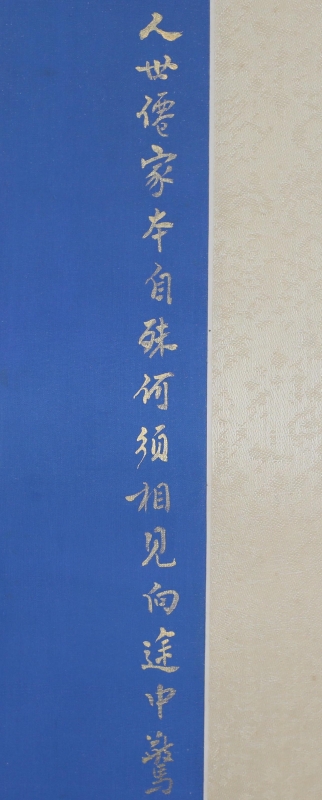 人世僊家本自殊何須相見向途中驚